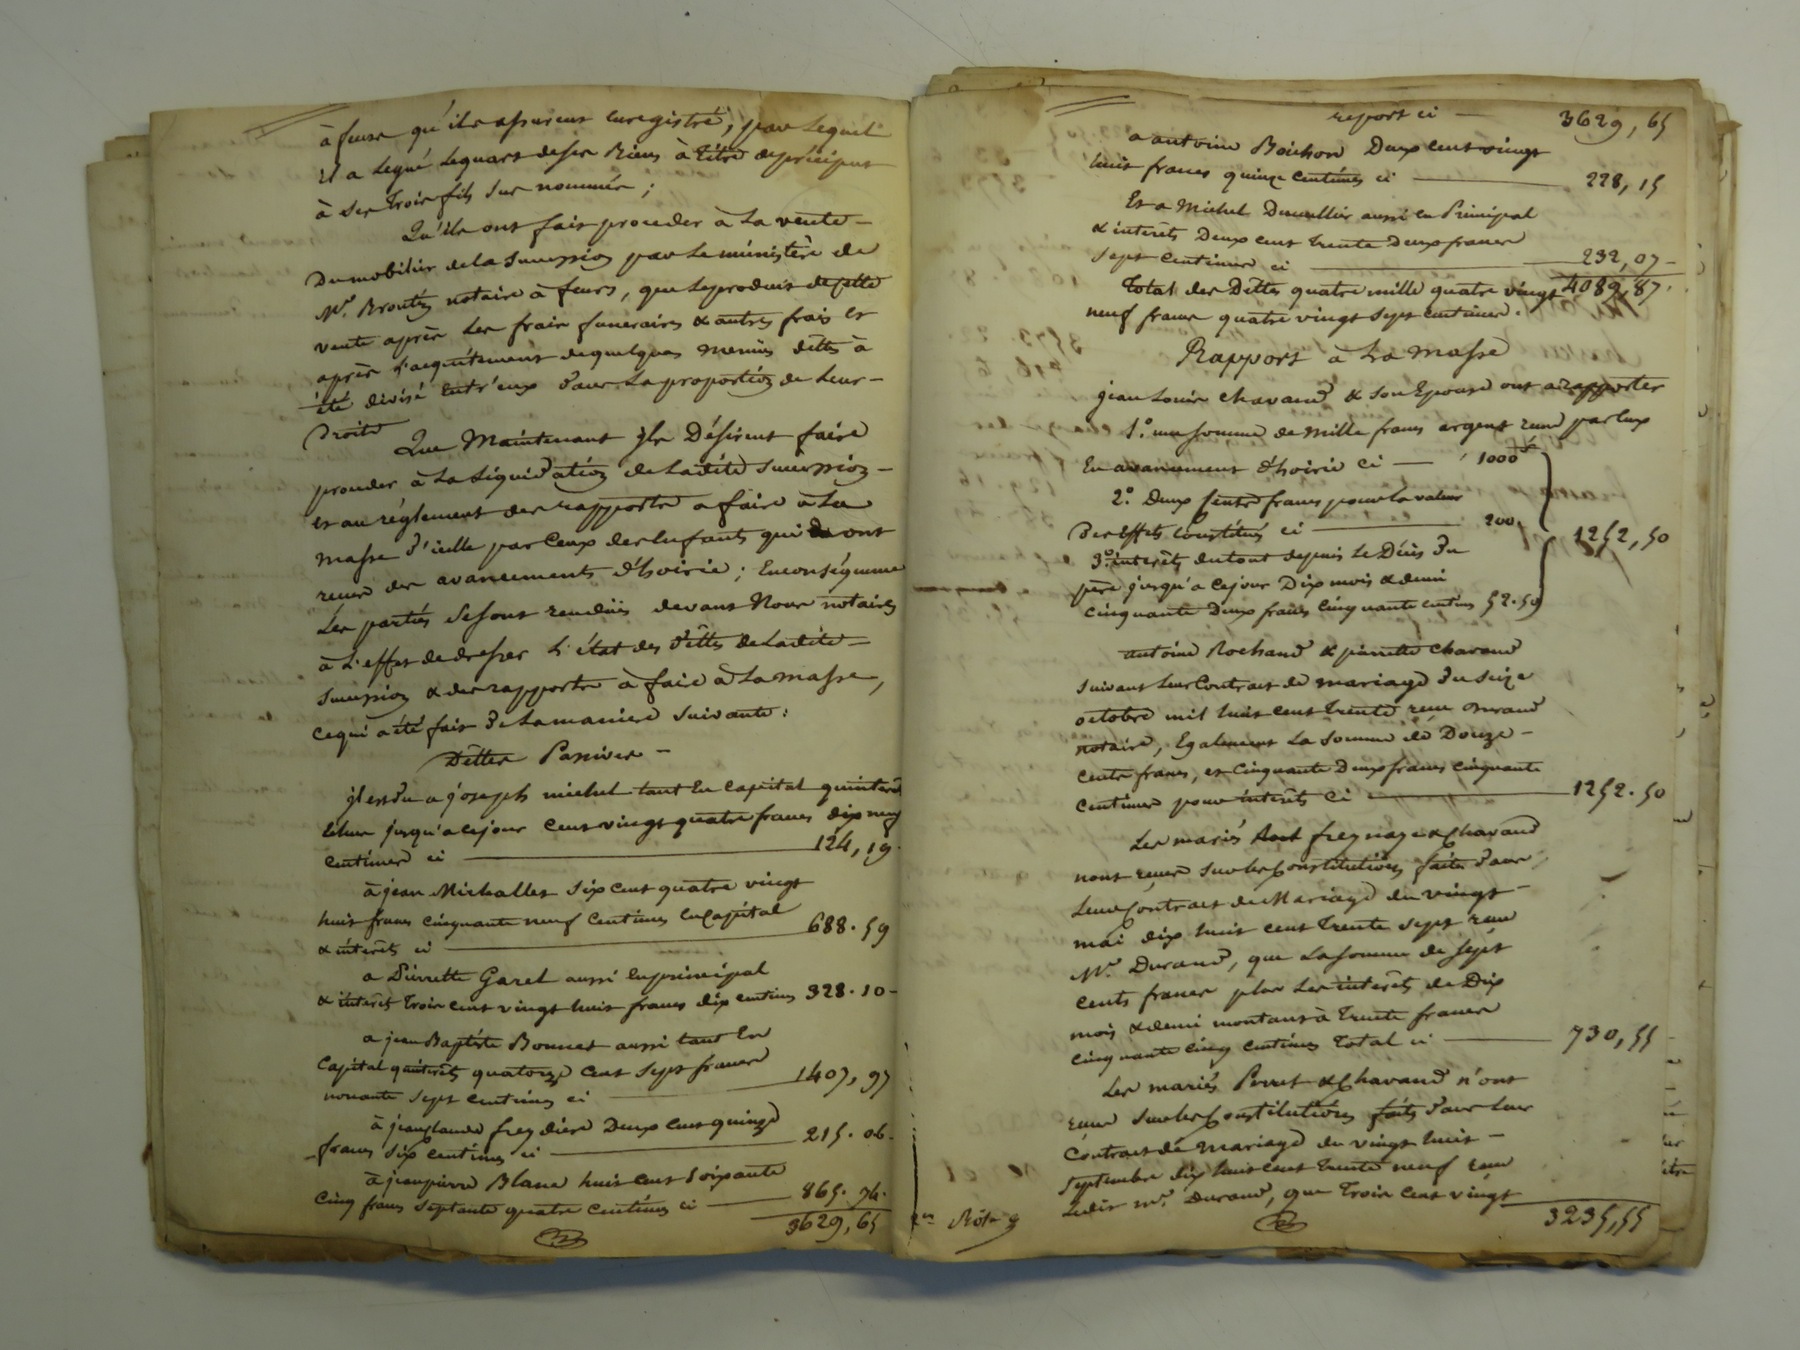 à feurs qu'ils assurent enregistré, par lequel
il a legué le quart de ses Biens à titre de préciput
à ses trois fils sus nommés ;
Qu'ils ont fait proceder à La vente
Du mobilier de la succession par le ministère de
Me. Broutin notaire à feurs, que le produit de cette
vente après les frais funeraires & autres frais et
après l'acquittement de quelques menues dettes à
été divisé entr'eux dans La proportion de leurs
Droits
Que Maintenant ils Désirent faire
proceder à La Liquidation de Ladite succession
et au réglement des rapports a faire à La
masse d'icelle par Ceux des enfants qui ont
recus des avancements d'hoirie ; En conséquence
Les parties se sont rendües devant Nous notaires
à L'effet de dresser L'état des dettes de Ladite
succession & des rapports à faire à La masse,
ce qui a été fait de La maniere suivante :
Dettes Passives
il est du a joseph michel tant en capital qu'interets
échus jusqu'a ce jour cent vingt quatre francs dix neuf
centimes ci 124, 19
à jean Michallet six cent quatre vingt
huit francs cinquante neuf centimes en Capital
& intérêts ci 688. 59
a Pierrette Garel aussi en principal
& interet trois cent vingt huit francs dix centimes 328. 10
a jean Baptiste Bonnet aussi tant en
Capital qu'intérêts quatorze cent sept francs
nonante sept centimes ci 1407, 97
à jean claude freydiere Deux cent quinze
francs six centimes ci 215. 06
à jean pierre Blanc huit cent soixante
cinq francs septante quatre centimes ci 865. 74
3629, 65
report ci 3629, 65
a antoine Boichon Deux cent vingt
huit francs quinze centimes ci 228, 15
Et a Michel aussi en Principal
& interets Deux cent trente Deux francs
sept centimes ci 232, 07
Total des Dettes quatre mille quatre vingt 4089, 87
neuf francs quatre vingt sept centimes.
Rapport à La masse
jean Louis chavand & son Epouse ont a rapporter
1.° une somme de mille francs argent recue par eux
En avancement d'hoirie ci 1000 f
2.° Deux Cents francs pour la valeur
Des Effets Constitués ci 200,
1252, 50
3.° interêts du tout depuis Le Décès du
père jusqu'a ce jour Dix mois & demi
cinquante Deux francs cinquante centimes 52. 50
Antoine Rochand & pierrette chavand
suivant leur Contrat de mariage du seize
octobre mil huit cent trente recu Durand
notaire, Egalement La somme de Douze
cents francs, et cinquante Deux francs cinquante
centimes pour intérêts ci 1252. 50
Les mariés freynage & Chavand
nont recus sur les Constitutions faites dans
Leur Contrat de Mariage du vingt
mai dix huit cent trente sept recu
Me. Durand, que La somme de sept
cents francs plus Les interêts de Dix
mois & demi montant à trente francs
cinquante cinq centimes total ci 730, 55
Les mariés Perret & Chavand n'ont
recus sur les Constitutions faites dans leur
Contrat de Mariage du vingt huit
septembre dix huit cent trente neuf recu
Ledit me. Durand, que trois cent vingt
3235, 55